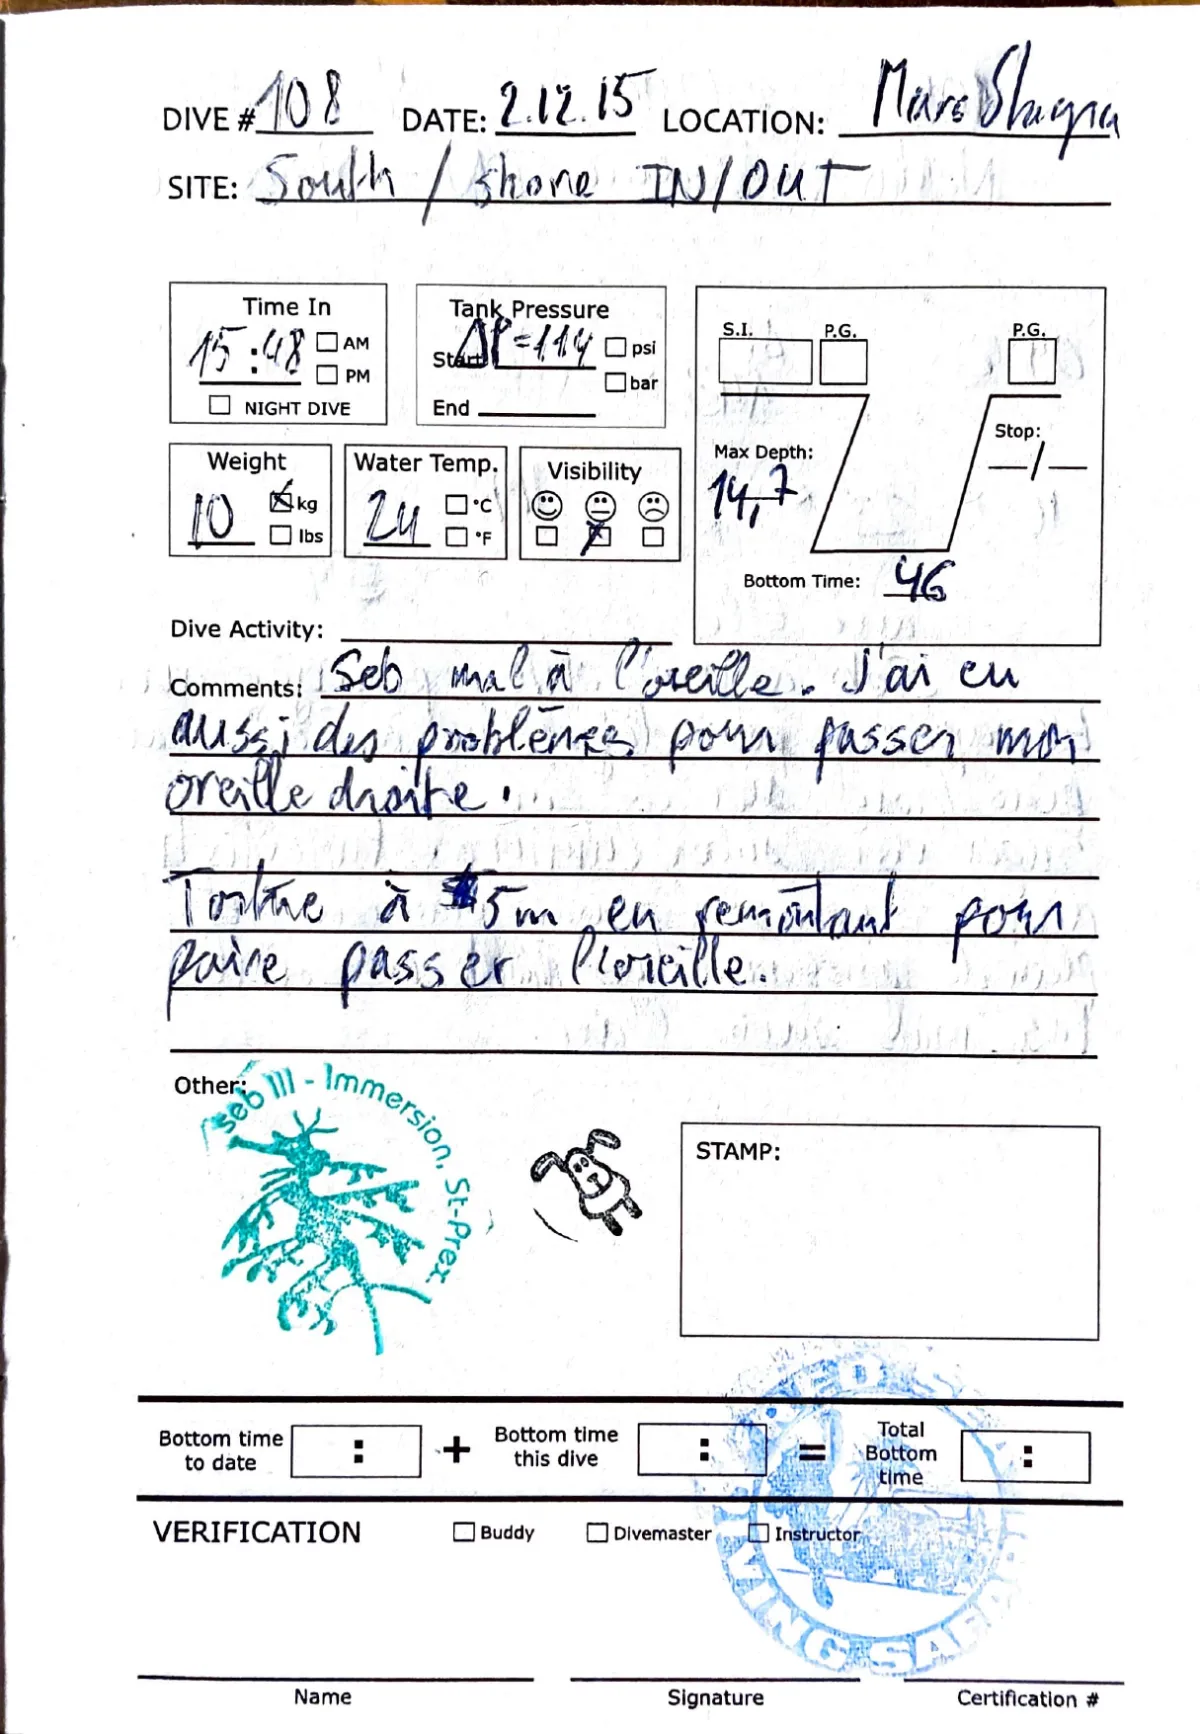 DIVE # 108 DATE: 2.12.15 LOCATION: Mars Shagra
SITE: South / shore IN/OUT
Time In
15:48 AM
PM
NIGHT DIVE
Tank Pressure
Start ΔP=114 psi
bar
End
S.I. P.G. P.G.
Max Depth:
14,7
Stop:
/
Bottom Time: 46
Weight
10 kg
lbs
Water Temp.
24 °C
°F
Visibility
Dive Activity:
Comments: Seb mal à l'oreille. J'ai eu
aussi des problèmes pour passer mon
oreille droite.
Tortue à 5m en remontant pour
faire passer l'oreille.
Other:
seb III - Immersion, St-Prex
STAMP:
Bottom time to date : + Bottom time this dive : = Total Bottom time :
RED SEA DIVING SAFARI
VERIFICATION Buddy Divemaster Instructor
Name Signature Certification #